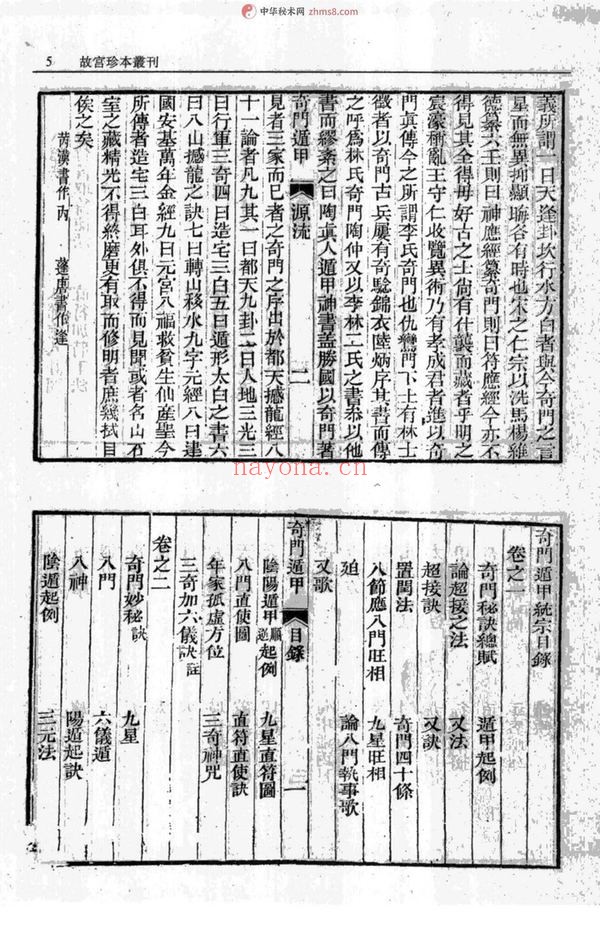 中华秘术网 zhms8.com
5 故宫珍本叢刊
義所謂一日天逢卦坎行水方白者與今奇門之言
星而無異抑顯晦各有時也宋之仁宗以洗馬楊維
德纂六壬則曰神應經纂奇門則曰符應經今亦不
得見其全得毋好古之士尙有什襲而藏者乎明之
宸濠稱亂王守仁收覽異術乃有孝成君者進以奇
門真傳今之所謂李氏奇門也仇鸞門下士有林士
徵者以奇門古兵屢有奇驗錦衣陸炳序其書而傳
之呼爲林氏奇門陶仲又以李林二氏之書恭以他
書而繆紊之曰陶真人遁甲神書蓋勝國以奇門著
奇門遁甲 源流 二
見者三家而已考之奇門之序出於都天撼龍經八
十一論者凡九其一曰都天九卦二曰人地三光三
曰行軍三奇四曰造宅三白五曰遁形太白之書六
曰八山撼龍之訣七曰轉山移水九字元經八曰建
國安基萬年金經九曰元宮八福救貧生仙産聖今
所傳者造宅三白耳外俱不得而見聞或者名山石
室之藏精光不得終磨更有取而修明者庶幾拭目
俟之矣
芮漢書作內 蓬唐書作逢
nayona.cn
奇門遁甲統宗目錄
卷之一
奇門秘訣總賦 遁甲起例
論超接之法 又法
超接訣 又訣
置閏法 奇門四十條
八節應八門旺相 九星旺相
迫 論八門執事歌
又歌
奇門遁甲 目錄 一
陰陽遁甲順逆起例 九星直符圖
八門直使圖 直符直使訣
年家孤虛方位 三奇神咒
三奇加六儀訣註
卷之二
奇門妙秘訣 九星
八門 六儀遁
八神 陽遁起訣
陰遁起例 三元法